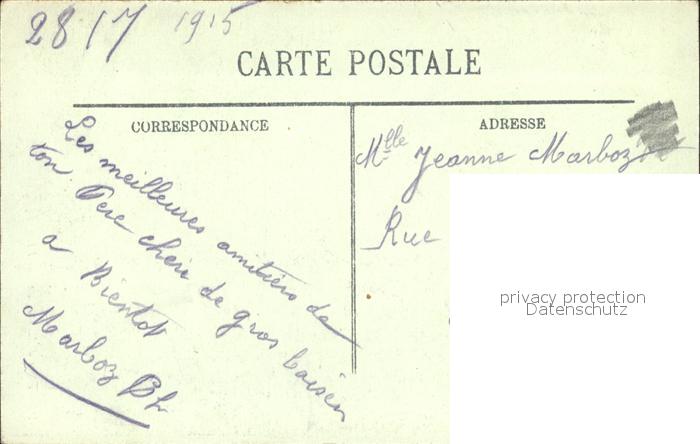 28/7 1915
CARTE POSTALE
CORRESPONDANCE
ADRESSE
Les meilleures amitiers de
ton Pere cheri de gros baisers
a Bientot
Marboz Ph
Mlle Jeanne Marboz
Rue
privacy protection
Datenschutz